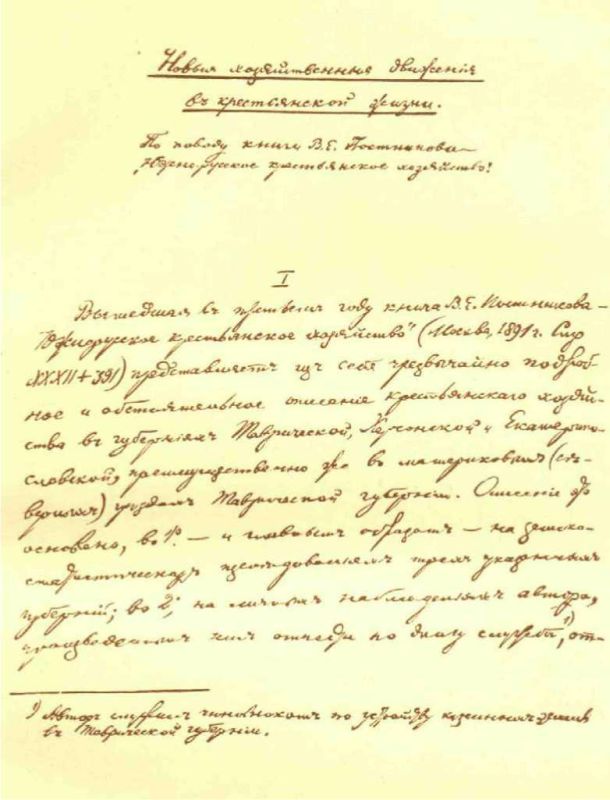 Новыя хозяйственныя движенія
въ крестьянской жизни.
По поводу книги В.Е. Постникова –
„Южно-русское крестьянское хозяйство“
I
Вышедшая въ третьемъ году книга В.Е. Постникова –
„Южнорусское крестьянское хозяйство“ (Москва, 1891 г. Стр
XXXII+391) представляетъ изъ себя чрезвычайно подроб-
ное и обстоятельное описаніе крестьянскаго хозяй-
ства въ губерніяхъ Таврической, Херсонской и Екатерино-
славской, преимущественно же въ материковыхъ (сѣ-
верныхъ) уѣздахъ Таврической губерніи. Описаніе это
основано, во 1ыхъ – и главнымъ образомъ – на земско-
статистическихъ изслѣдованіяхъ трехъ указанныхъ
губерній; во 2, на личныхъ наблюденіяхъ автора,
произведенныхъ имъ отчасти по долгу службы 1), от-
1) Авторъ служилъ чиновникомъ по устройству казенныхъ земель
въ Таврической губерніи.